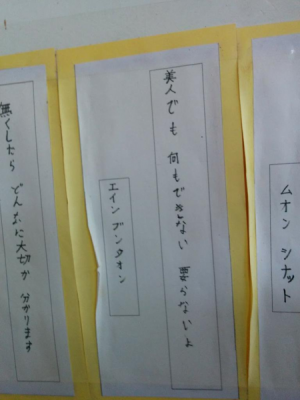 ムオン シナット
美人でも 何もできない 要らないよ
エイン ブンタオン
無くしたら どんなに大切か 分かります